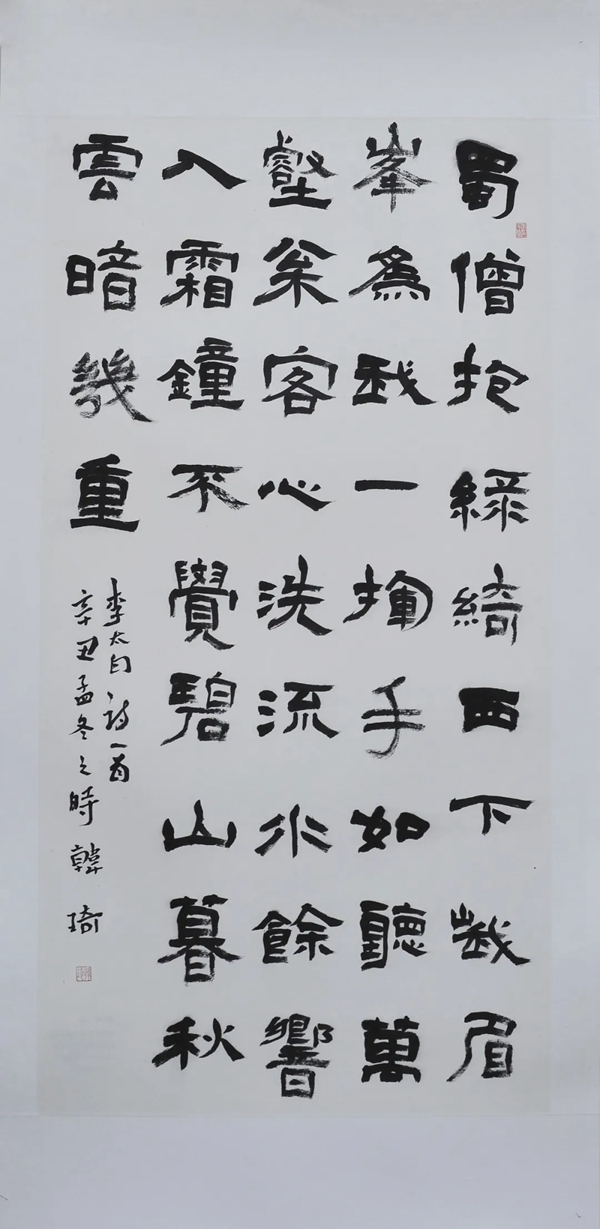 蜀僧抱綠綺西下峩眉
峯爲我一揮手如聽萬
壑枀客心洗流水餘響
入霜鐘不覺碧山暮秋
雲暗幾重
李太白詩一首
辛丑孟冬之時韓琦